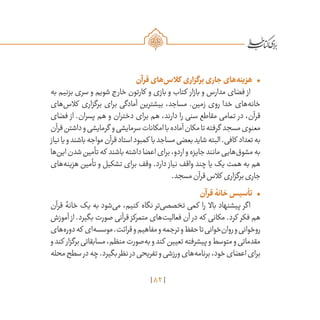 • هزینه‌های جاری برگزاری کلاس‌های قرآن
از فضای مدارس و بازار کتاب و بازی و کارتون خارج شویم و سری بزنیم به
خانه‌های خدا روی زمین. مساجد، بیشترین آمادگی برای برگزاری کلاس‌های
قرآن، در تمامی مقاطع سنی را دارند، هم برای دختران و هم پسران. از فضای
معنوی مسجد گرفته تا مکان آماده با امکانات سرمایشی و گرمایشی و داشتن قرآن
به تعداد کافی. البته شاید بعضی مساجد با کمبود استاد قرآن مواجه باشند و یا نیاز
به مشوق‌هایی مانند جایزه و اردو، برای اعضا داشته باشند که تأمین شدن این‌ها
هم به همت یک یا چند واقف نیاز دارد. وقف برای تشکیل و تأمین هزینه‌های
جاری برگزاری کلاس قرآن مسجد.
• تأسیس خانهٔ قرآن
اگر پیشنهاد بالا را کمی تخصصی‌تر نگاه کنیم، می‌شود به یک خانهٔ قرآن
هم فکر کرد. مکانی که در آن فعالیت‌های متمرکز قرآنی صورت بگیرد. از آموزش
روخوانی و روان‌خوانی تا حفظ و ترجمه و مفاهیم و قرائت. موسسه‌ای که دوره‌های
مقدماتی و متوسط و پیشرفته تعیین کند و به‌صورت منظم، مسابقاتی برگزار کند و
برای اعضای خود، برنامه‌های ورزشی و تفریحی در نظر بگیرد. چه در سطح محله
|۸۲|